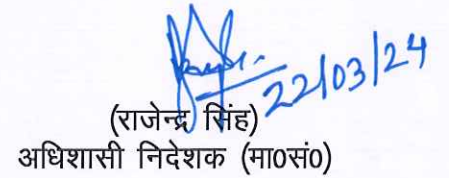 22/03/24
(राजेन्द्र सिंह)
अधिशासी निदेशक (मा0सं0)